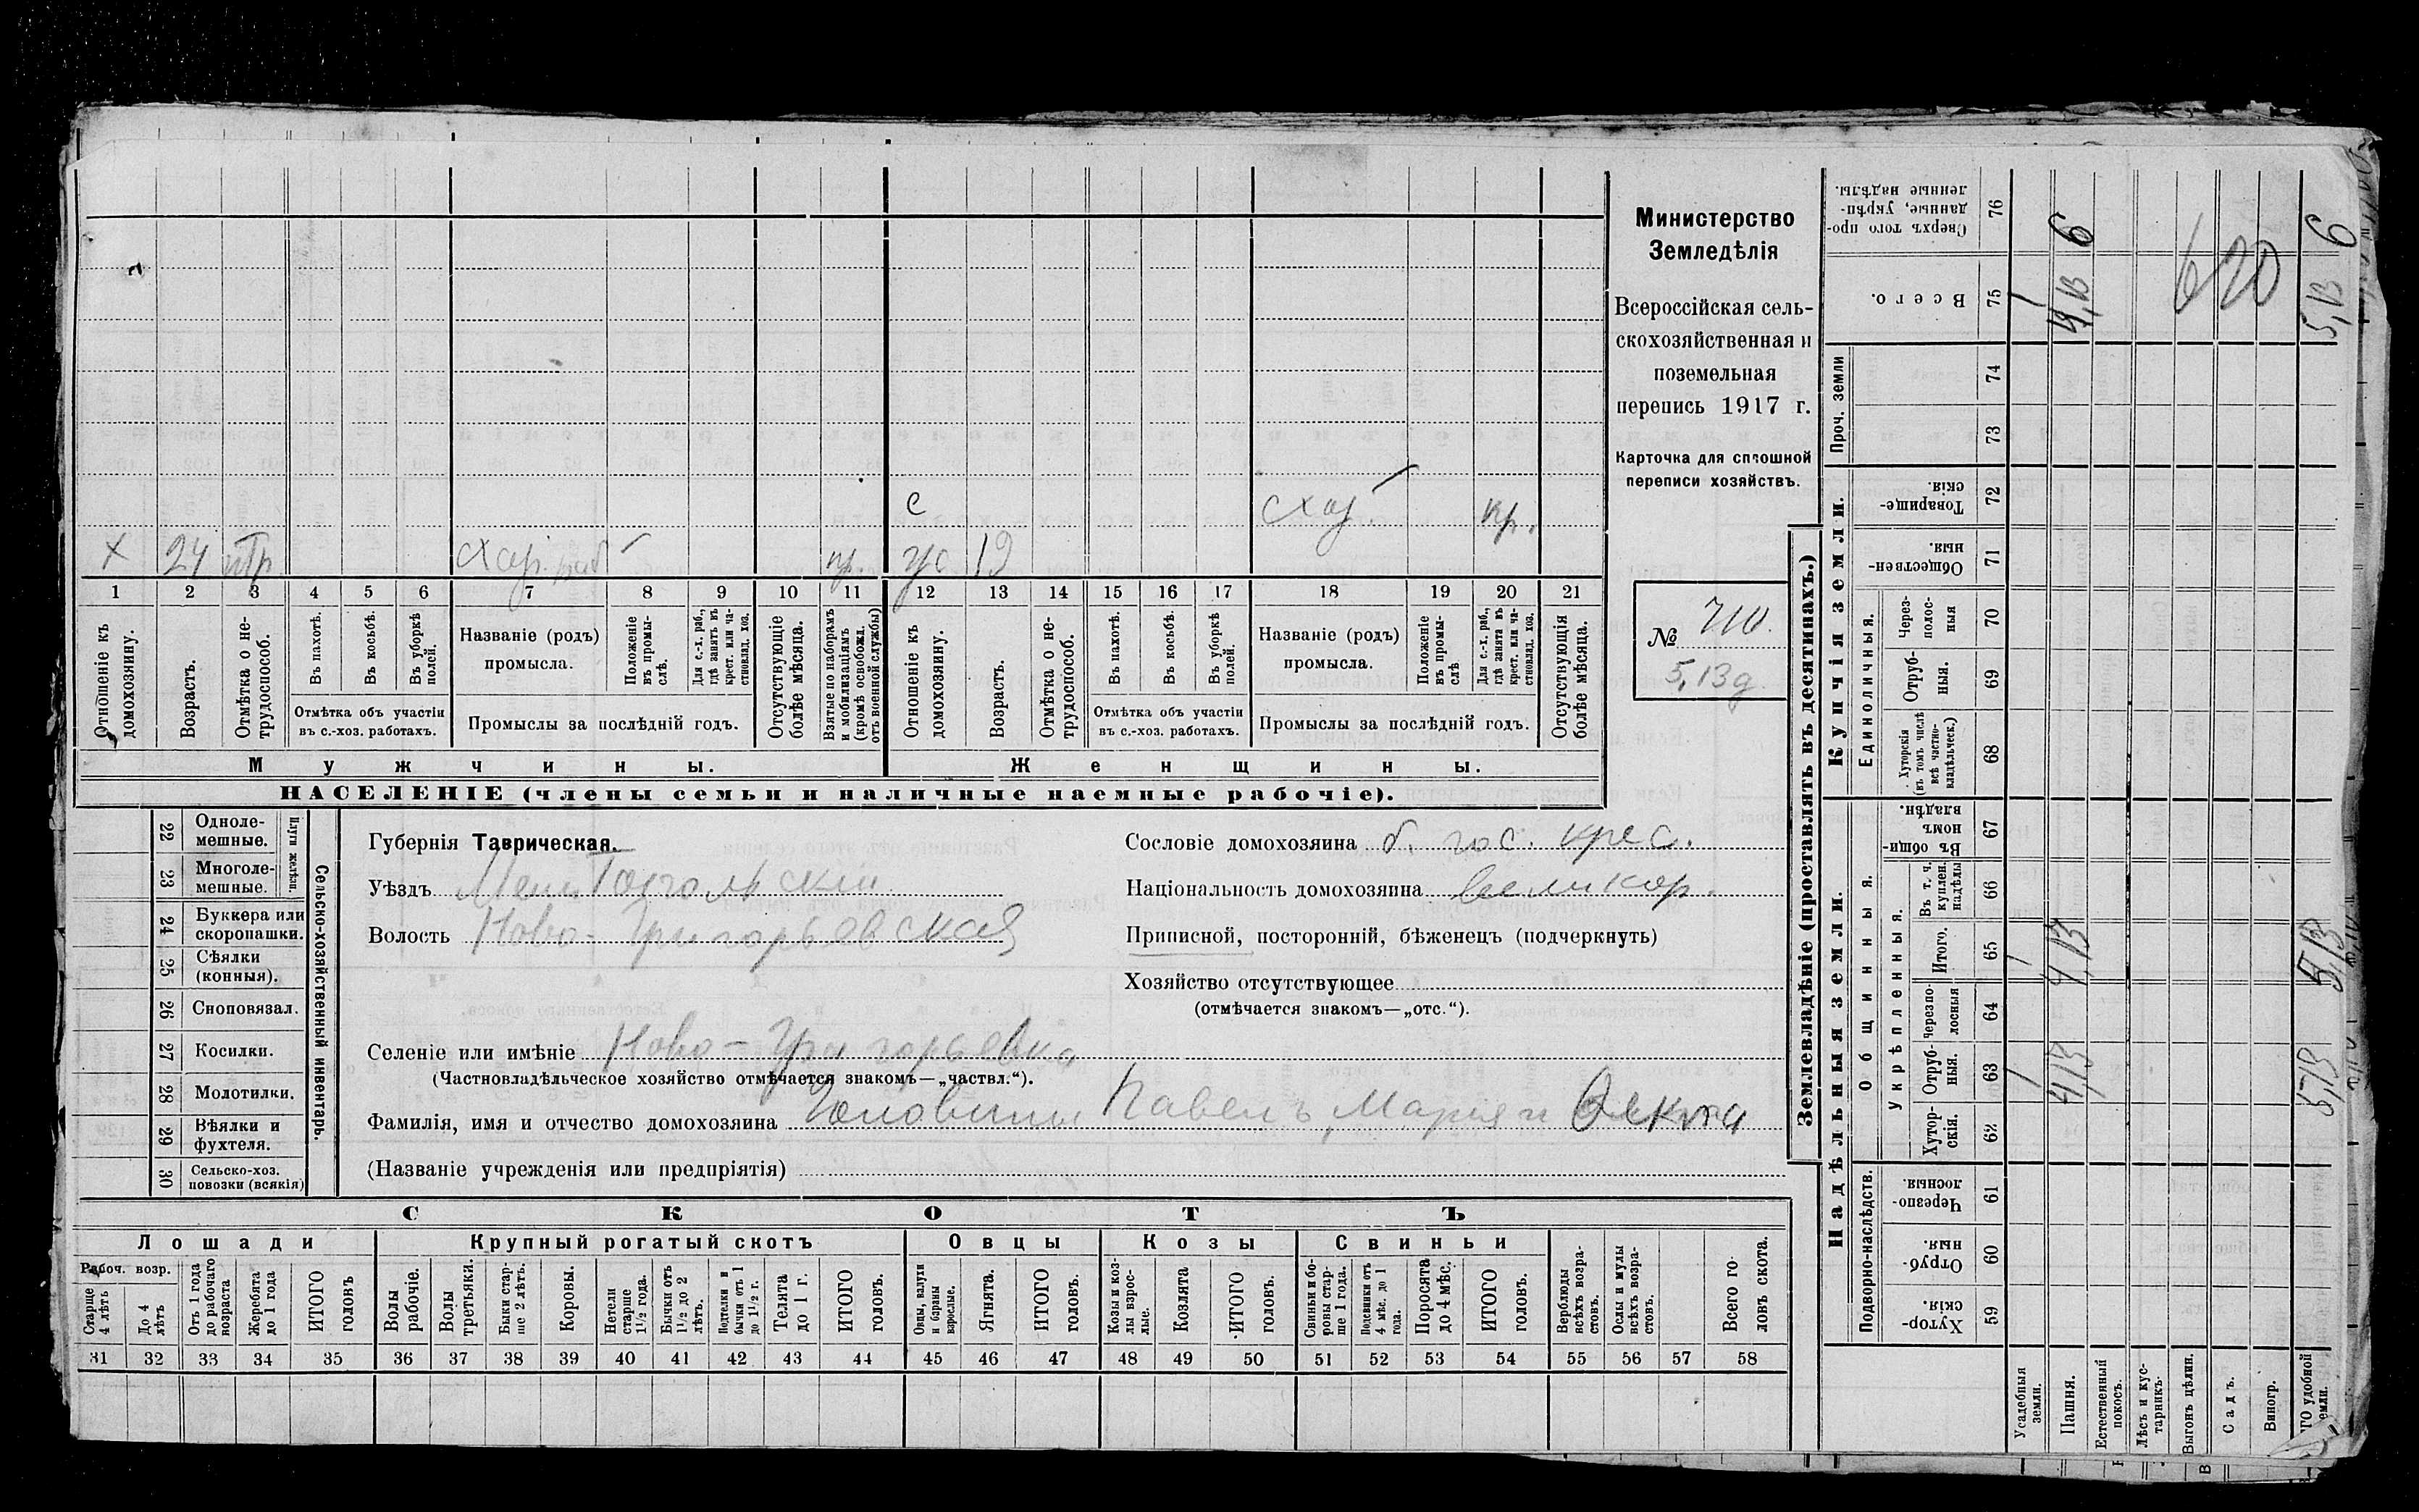 х 24 с схоз. кр.
ус 19
1 2 3 4 5 6 7 8 9 10 11 12 13 14 15 16 17 18 19 20 21
Отношеніе къ домохозяину.
Возрастъ.
Отмѣтка о нетрудоспособ.
Въ пахотѣ.
Въ косьбѣ.
Въ уборкѣ полей.
Отмѣтка объ участіи
въ с.-хоз. работахъ.
Названіе (родъ)
промысла.
Положеніе въ промыслѣ.
Для с.-х. раб., гдѣ занятъ въ крест. или частновлад. хоз.
Промыслы за послѣдній годъ.
Отсутствующіе болѣе мѣсяца.
Взятые по наборамъ и мобилизаціямъ (кромѣ освобожд. отъ военной службы)
Отношеніе къ домохозяину.
Возрастъ.
Отмѣтка о нетрудоспособ.
Въ пахотѣ.
Въ косьбѣ.
Въ уборкѣ полей.
Отмѣтка объ участіи
въ с.-хоз. работахъ.
Названіе (родъ)
промысла.
Положеніе въ промыслѣ
Для с.-х. раб., гдѣ занята въ крест. или частновлад. хоз.
Промыслы за послѣдній годъ.
Отсутствующія болѣе мѣсяца.
Мужчины. Женщины.
НАСЕЛЕНІЕ (члены семьи и наличные наемные рабочіе).
Министерство
Земледѣлія
Всероссійская сель-
скохозяйственная и
поземельная
перепись 1917 г.
Карточка для сплошной
переписи хозяйствъ.
№ 710.
5,13 д.
Сельско-хозяйственный инвентарь.
Плуги желѣзн.
22 Одноле-
мешные.
23 Многоле-
мешные.
24 Буккера или
скоропашки.
25 Сѣялки
(конныя).
26 Сноповязал.
27 Косилки.
28 Молотилки.
29 Вѣялки и
фухтеля.
30 Сельско-хоз.
повозки (всякія)
Губернія Таврическая.
Уѣздъ Мелитопольскій
Волость Ново-Григорьевская
Сословіе домохозяина б. гос. крес.
Національность домохозяина великор.
Приписной, посторонній, бѣженецъ (подчеркнуть)
Хозяйство отсутствующее
(отмѣчается знакомъ—„отс.“).
Селеніе или имѣніе Ново-Григорьевка
(Частновладѣльческое хозяйство отмѣчается знакомъ—„частвл.“).
Фамилія, имя и отчество домохозяина Павелъ, Марія и
(Названіе учрежденія или предпріятія)
СКОТЪ
Лошади Крупный рогатый скотъ Овцы Козы Свиньи
Рабоч. возр.
Старше 4 лѣтъ
До 4 лѣтъ
Отъ 1 года до рабочаго возраста
Жеребята до 1 года
ИТОГО головъ
Волы рабочіе.
Волы третьяки.
Быки старше 2 лѣтъ.
Коровы.
Нетели старше 1½ года.
Бычки отъ 1½ до 2 лѣтъ.
Подтелки и бычки отъ 1 до 1½ г.
Телята до 1 г.
ИТОГО головъ.
Овцы, валухи и бараны взрослые.
Ягнята.
ИТОГО головъ.
Козы и козлы взрослые.
Козлята
ИТОГО головъ.
Свиньи и боровы старше 1 года.
Подсвинки отъ 4 мѣс. до 1 года.
Поросята до 4 мѣс.
ИТОГО головъ.
Верблюды всѣхъ возрастовъ.
Ослы и мулы всѣхъ возрастовъ.
Всего головъ скота.
31 32 33 34 35 36 37 38 39 40 41 42 43 44 45 46 47 48 49 50 51 52 53 54 55 56 57 58
Землевладѣніе (проставлять въ десятинахъ.)
Надѣльныя земли. Купчія земли.
Подворно-наслѣдств.
Общинныя.
Укрѣпленныя.
Единоличныя.
Проч. земли
Хуторскія. 59
Отрубныя. 60
Черезполосныя. 61
Хуторскія. 62
Отрубныя. 63
Черезполосныя 64
Итого. 65
Въ т. ч. куплен. надѣлы 66
Въ общинномъ владѣн. 67
Хуторскія (въ томъ числѣ всѣ частновладѣльческ.) 68
Отрубныя. 69
Черезполосныя 70
Общественныя. 71
Товарищескія. 72
73
74
Всего. 75
Сверхъ того проданные, укрѣпленные надѣлы. 76
Усадебныя земли. 1 1 1
Пашня. 4,13 4,13 4,13 6
Естественный покосъ.
Лѣсъ и кустарникъ.
Выгонъ цѣлин.
Садъ.
Виногр.
удобной земли. 5,13 5,13 5,13 6
620